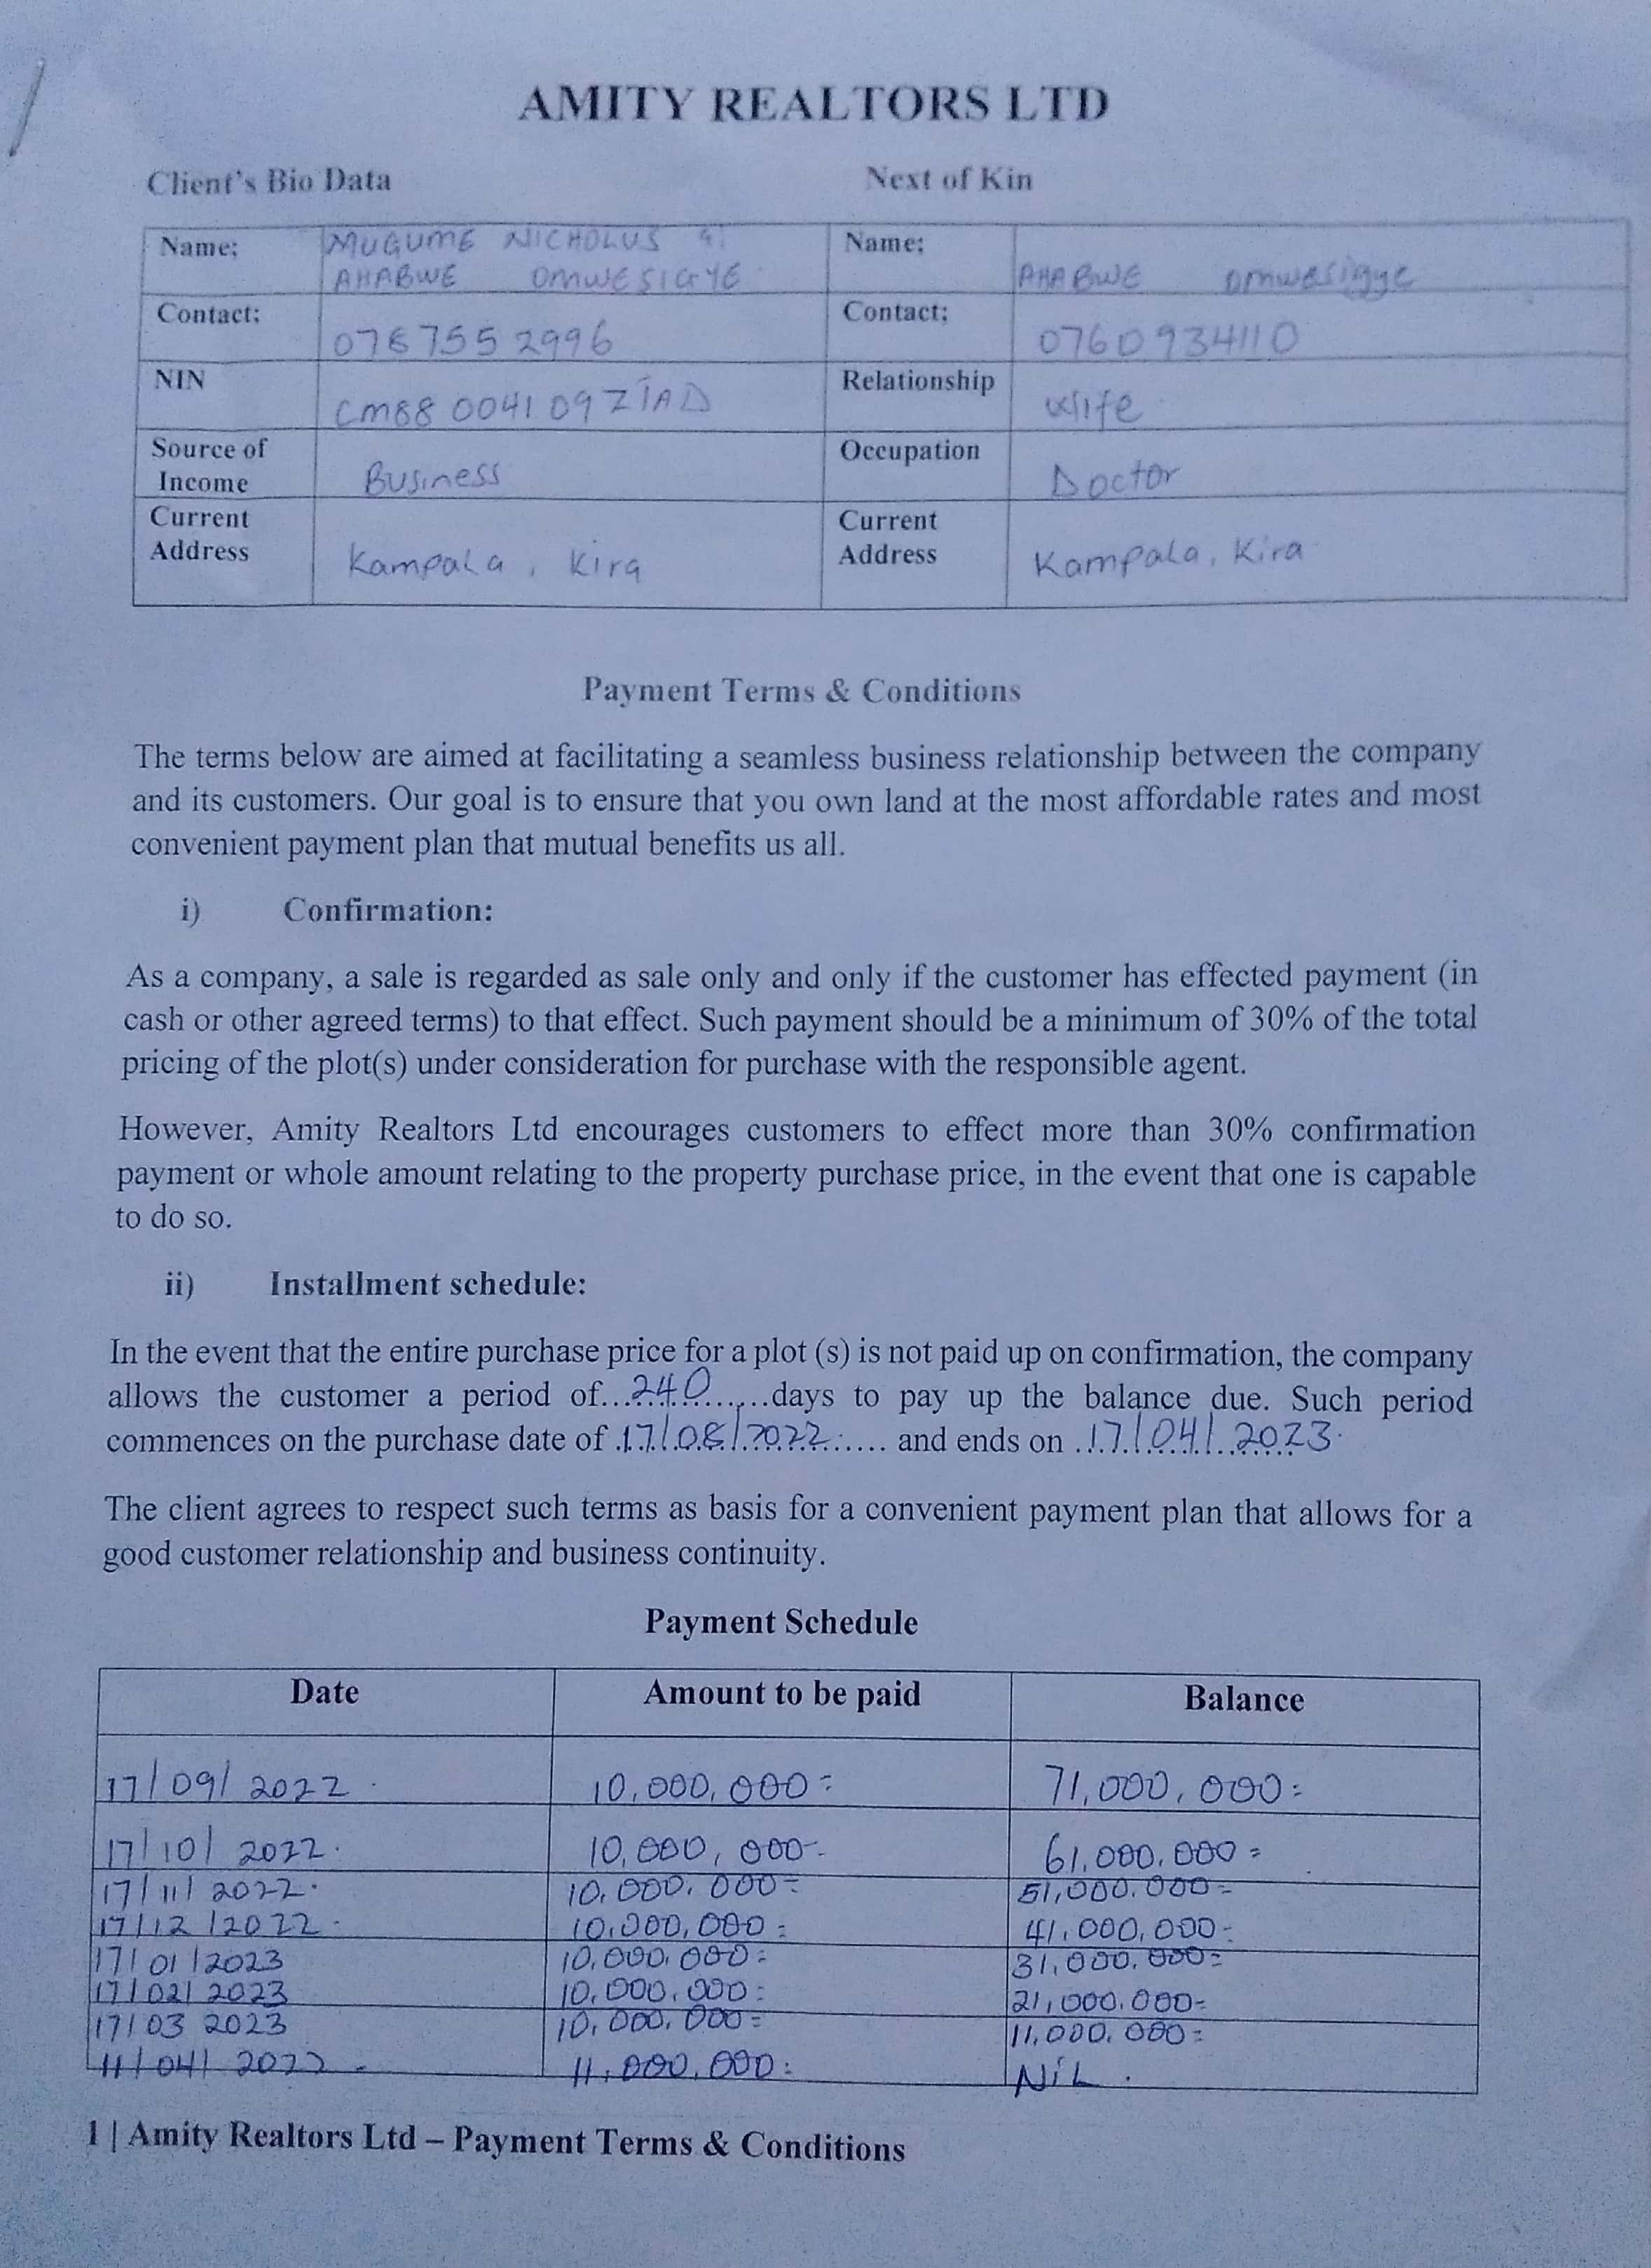 AMITY REALTORS LTD
Client's Bio Data Next of Kin
Name: MUGUME NICHOLUS Name:
AHABWE OMWESIGYE AHABWE omwesigye
Contact: 0787552996 Contact: 0760934110
NIN CM88004109ZIAD Relationship Wife
Source of Income Business Occupation Doctor
Current Address Kampala, Kira Current Address Kampala, Kira
Payment Terms & Conditions
The terms below are aimed at facilitating a seamless business relationship between the company
and its customers. Our goal is to ensure that you own land at the most affordable rates and most
convenient payment plan that mutual benefits us all.
i) Confirmation:
As a company, a sale is regarded as sale only and only if the customer has effected payment (in
cash or other agreed terms) to that effect. Such payment should be a minimum of 30% of the total
pricing of the plot(s) under consideration for purchase with the responsible agent.
However, Amity Realtors Ltd encourages customers to effect more than 30% confirmation
payment or whole amount relating to the property purchase price, in the event that one is capable
to do so.
ii) Installment schedule:
In the event that the entire purchase price for a plot (s) is not paid up on confirmation, the company
allows the customer a period of...240.......days to pay up the balance due. Such period
commences on the purchase date of .17/08/2022..... and ends on .17/04/2023.
The client agrees to respect such terms as basis for a convenient payment plan that allows for a
good customer relationship and business continuity.
Payment Schedule
Date Amount to be paid Balance
17/09/2022. 10,000,000= 71,000,000=
17/10/2022. 10,000,000- 61,000,000=
17/11/2022. 10,000,000= 51,000,000=
17/12/2022- 10,000,000= 41,000,000=
17/01/2023 10,000,000= 31,000,000=
17/02/2023 10,000,000= 21,000,000=
17/03 2023 10,000,000= 11,000,000=
11,000,000= NiL.
1 | Amity Realtors Ltd – Payment Terms & Conditions